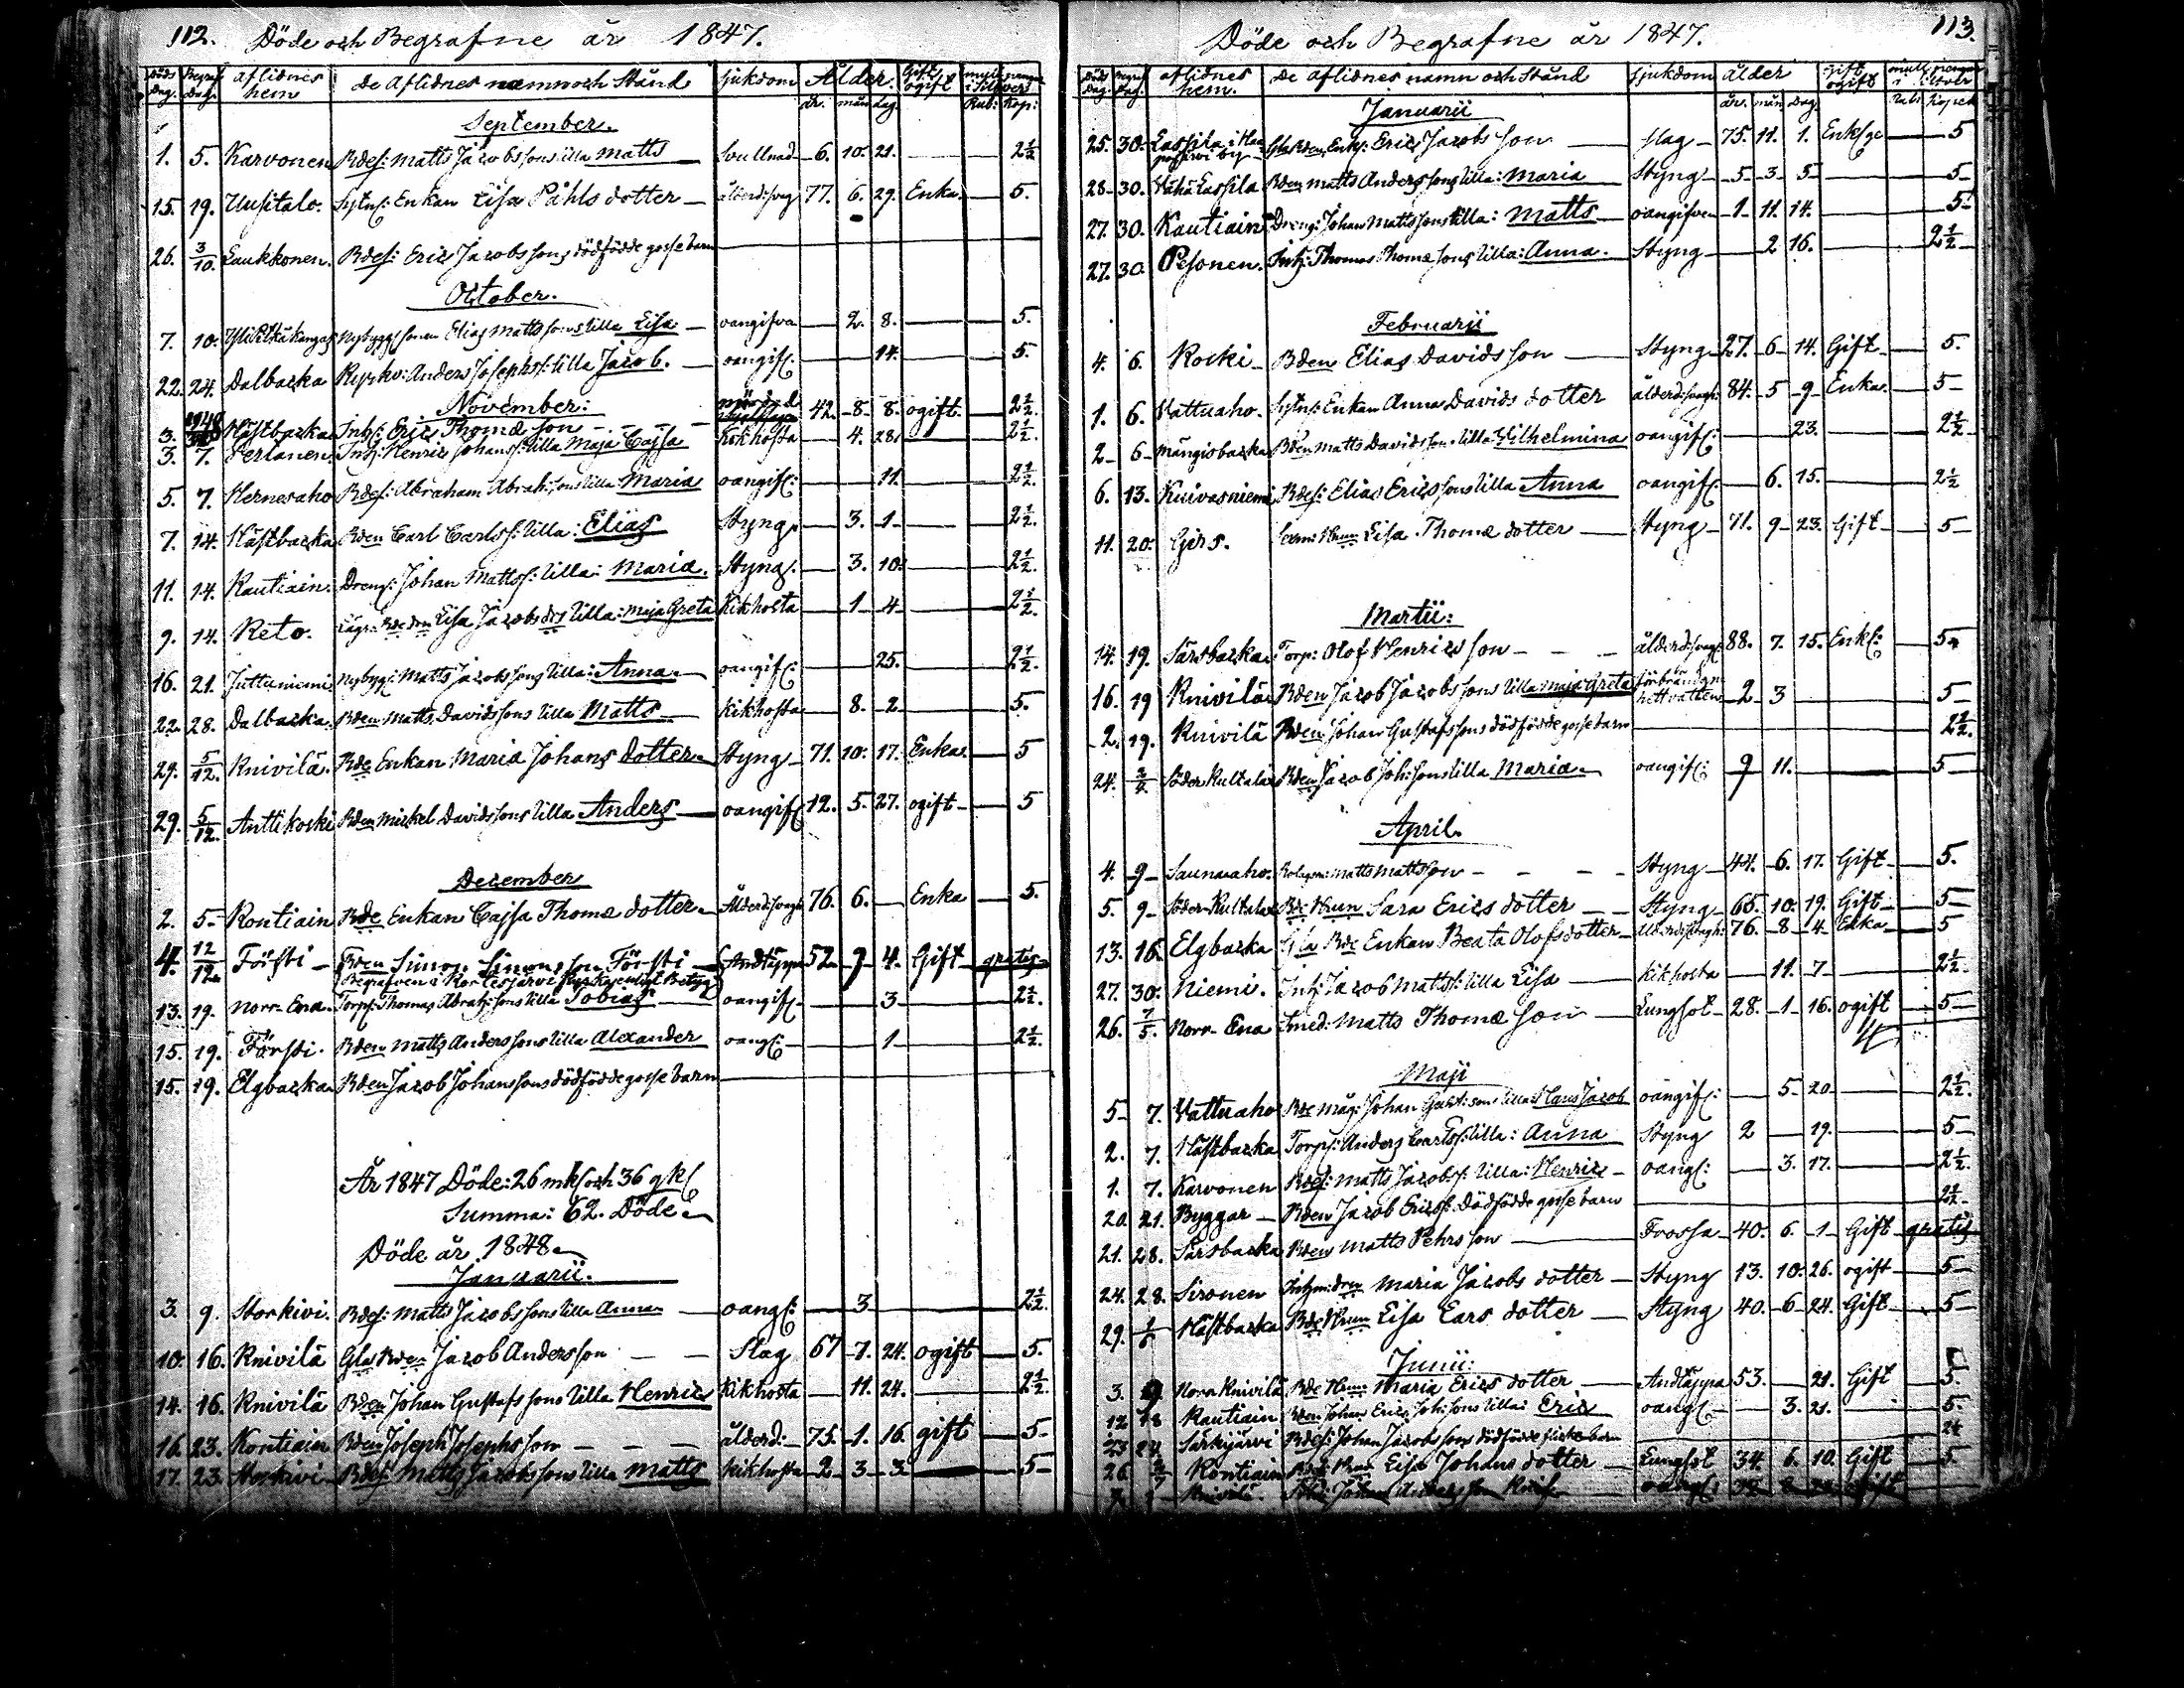 112. Döde och Begrafne år 1847.
Döds Dag. Begraf. Dag. aflidnes hem De Aflidnes namn och Stånd Sjukdom Ålder. Gift ogift mullpengar i Silfver
år. mån dag. Rub: Kop:
September.
1. 5. Karvonen Bdes: Matts Jacobssons lilla Matts Svullnad 6. 10. 21. 2½
15. 19. Uusitalo. Sytn: Enkan Lisa Påhls dotter ålderd:svag 77. 6. 29. Enka. 5.
26. 3/10. Laukkonen. Bdes: Eric Jacobssons dödfödde gosse barn
October.
7. 10. Yli Pitkäkangas Nybyggssonen Elias Mattssons lilla Lisa oangifva 2. 8. 5.
22. 24. Dalbacka Kyrkv: Anders Josephs: lilla Jacob. oangif: 14. 5.
November:
3. 1848 Håstbacka Inh: Eric Thomæ son 42. 8. 8. ogift. 2½.
3. 7. Pertanen. Inh: Henric Johans: lilla Maja Cajsa Kikhosta 4. 28. 2½.
5. 7. Hernesaho Bdes: Abraham Abrah:sons lilla Maria oangif: 11. 2½.
7. 14. Håstbacka Bden Carl Carls s: lilla: Elias Styng. 3. 1. 2½.
11. 14. Kautiain: Dreng: Johan Mattss: lilla: Maria. Styng. 3. 10. 2½.
9. 14. Reto. Lägr: Bde dren Lisa Jacobs drs lilla: Maja Greta Kikhosta 1. 4. 2½.
16. 21. Juttuniemi Nybyg: Matts Jacobssons lilla: Anna. oangif: 25. 2½.
22. 28. Dalbacka. Bden Matts Davidssons lilla Matts Kikhosta 8. 2. 5.
29. 5/12. Knivilä. Bde Enkan Maria Johans dotter. Styng 71. 10. 17. Enka. 5
29. 5/12. Anttikoski Bden Mickel Davidssons lilla Anders oangif: 12. 5. 27. ogift 5
December
2. 5. Kontiain Bde Enkan Cajsa Thomæ dotter. Ålderd:svagh 76. 6. Enka 5.
4. 12/12. Försti Bden Simon Simonsson Försti Andtäppa 52. 7. 4. Gift gratis
Begrafven i Kortesjärvi Kyrka enligt Betyg
13. 19. Norr-Ena. Torp: Thomas Abrah:sons lilla Tobias oangif: 3. 2½.
15. 19. Försti. Bden Matts Anderssons lilla Alexander oang: 1. 2½.
15. 19. Elgbacka Bden Jacob Johanssons dödfödde gosse barn
År 1847 Döde: 26 mk: och 36 qk:
Summa: 62. Döde.
Döde år 1848.
Januarii.
3. 9. Storkivi. Bdes: Matts Jacobssons lilla Anna oang: 3 2½.
10. 16. Knivilä Gla Bden Jacob Andersson Slag 67 7. 24. ogift 5.
14. 16. Knivilä Bden Johan Gustafssons lilla Henric Kikhosta 11. 24. 2½.
16. 23. Kontiain Bden Joseph Josephsson ålderd: 75. 1. 16. gift 5
17. 23. Storkivi Bdes: Matts Jacobssons lilla Matts Kikhosta 2 3 3 5
Döde och Begrafne år 1847. 113.
Döds Dag. Begraf Dag. aflidnes hem. De aflidnes namn och Stånd Sjukdom ålder gift ogift mull pengar i silfver
års. mån Dag. Rub: Kopek
Januarii
25. 30. Lassila i Haapajärvi by Gla Bden Enkl: Eric Jacobsson slag 75. 11. 1. Enkling 5
28. 30. Vähä Lassila Bden Matts Anderssons lilla: Maria Styng 5 3 5 5
27. 30. Kautiain Dreng: Johan Mattssons lilla: Matts oangifven 1 11. 14. 5
27. 30. Pesonen. Inh: Thomas Thomæ sons lilla: Anna. Styng 2 16. 2½
Februarii
4. 6. Kocki Bden Elias Davidsson Styng 27. 6 14. Gift 5.
1. 6. Vattuaho. Sytn: Enkan Anna Davids dotter ålderd:svagh. 84. 5 9 Enka. 5
2 6 Mångisbacka Bden Matts Davidsson lilla Wilhelmina oangif: 23. 2½
6. 13. Knivasniemi Bdes: Elias Ericssons lilla Anna oangif: 6. 15. 2½
11. 20. Girs. Hrun Lisa Thomæ dotter Styng 71. 9 23. Gift 5
Martii:
14. 19. Särsbacka Torp: Olof Henricsson ålderd:svag: 88. 7. 15. Enkl: 5
16. 19 Knivilä Bden Jacob Jacobssons lilla Maja Greta förbränd af hett vatten 2 3 5
2. 19. Knivilä Bden Johan Gustafssons dödfödde gosse barn 2½.
24. 2/4. Söder Kultalax Bden Jacob Joh:sons lilla Maria. oangif: 9 11. 5
April.
4. 9 Saunaaho. Matts Mattsson Styng 44. 6. 17. Gift 5.
5. 9 Söder Kultalax Bde Hrun Sara Erics dotter Styng 65. 10. 19. Gift 5
13. 16. Elgbacka Gla Bde Enkan Beata Olofsdotter ålderd:svagh: 76. 8 4 Enka 5
27. 30. Niemi. Inh: Jacob Mattss: lilla Lisa Kikhosta 11. 7 2½
26. 7/5. Norr-Ena Smed: Matts Thomæ son Lungsot 28. 1 16. ogift 5
Maji
5 7. Vattuaho Bde måg: Johan Gust: sons lilla Hans Jacob oangif: 5 20 2½.
2. 7. Håstbacka Torp: Anders Carlss: lilla: Anna Styng 2 19. 5
1. 7. Karvonen Bdes: Matts Jacobs s: lilla: Henric oang: 3. 17. 2½.
20. 21. Byggar Bden Jacob Ericss. Dödfödde gosse barn 2½
21. 28. Särsbacka Bden Matts Pehrsson Frossa 40. 6. 1 Gift gratis
24. 28. Sironen Inhm: dren Maria Jacobs dotter Styng 13. 10. 26. ogift 5
29. Håstbacka Bde Hrun Lisa Lars dotter Styng 40. 6 24. Gift 5
Junii:
3. 9 Norr Knivilä Bde Hrun Maria Erics dotter Andtäppa 53. 21. Gift 5.
12 18 Kautiain Bden Johan Eric Joh:sons lilla: Eric oang: 3. 21. 5.
23 24 Särkijärvi Bdes: Johan Jacobssons dödfödde flicke barn 2½
26. 2/7 Kontiain Bde Hrun Lisa Johans dotter Lungsot 34. 6. 10. Gift 5.
Knivilä Johan oang: